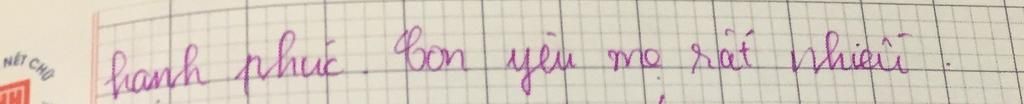 NÉT CHỮ
hạnh phúc. Con yêu mẹ rất nhiều.